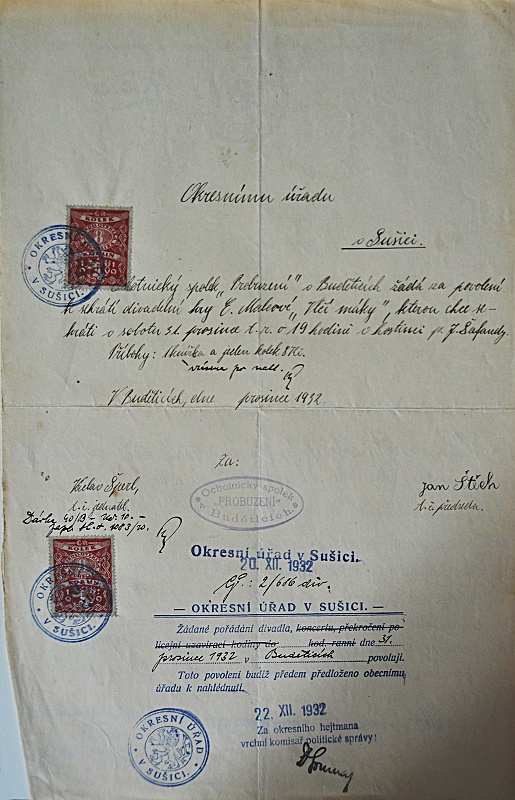 Okresnímu úřadu
v Sušici.
OKRESNÍ
V SUŠICI.
KOLEK
8
Ochotnický spolek „Probuzení" v Buděticích žádá za povolení
k sehrání divadelní hry E. Malcové „Vlčí máky", kterou chce se-
hráti v sobotu 31. prosince t. r. v 19 hodin v hostinci p. J.
Přílohy: knížka a jeden kolek 8 Kč.
V Buděticích, dne prosince 1932.
Za:
Václav
t. č. jednatel
Ochotnický spolek
"PROBUZENÍ"
v Budětících.
Jan Štich
t. č. předseda.
KOLEK
V SUŠICI.
Okresní úřad v Sušici.
20. XII. 1932
čj.: 2/616 div.
— OKRESNÍ ÚŘAD V SUŠICI. —
Žádané pořádání divadla, koncertu, překročení po-
licejní uzavírací hodiny do hod. ranní dne 31.
prosince 1932 v Buděticích povoluji.
Toto povolení budiž předem předloženo obecnímu
úřadu k nahlédnutí.
22. XII. 1932
Za okresního hejtmana
vrchní komisař politické správy:
OKRESNÍ ÚŘAD
V SUŠICI.